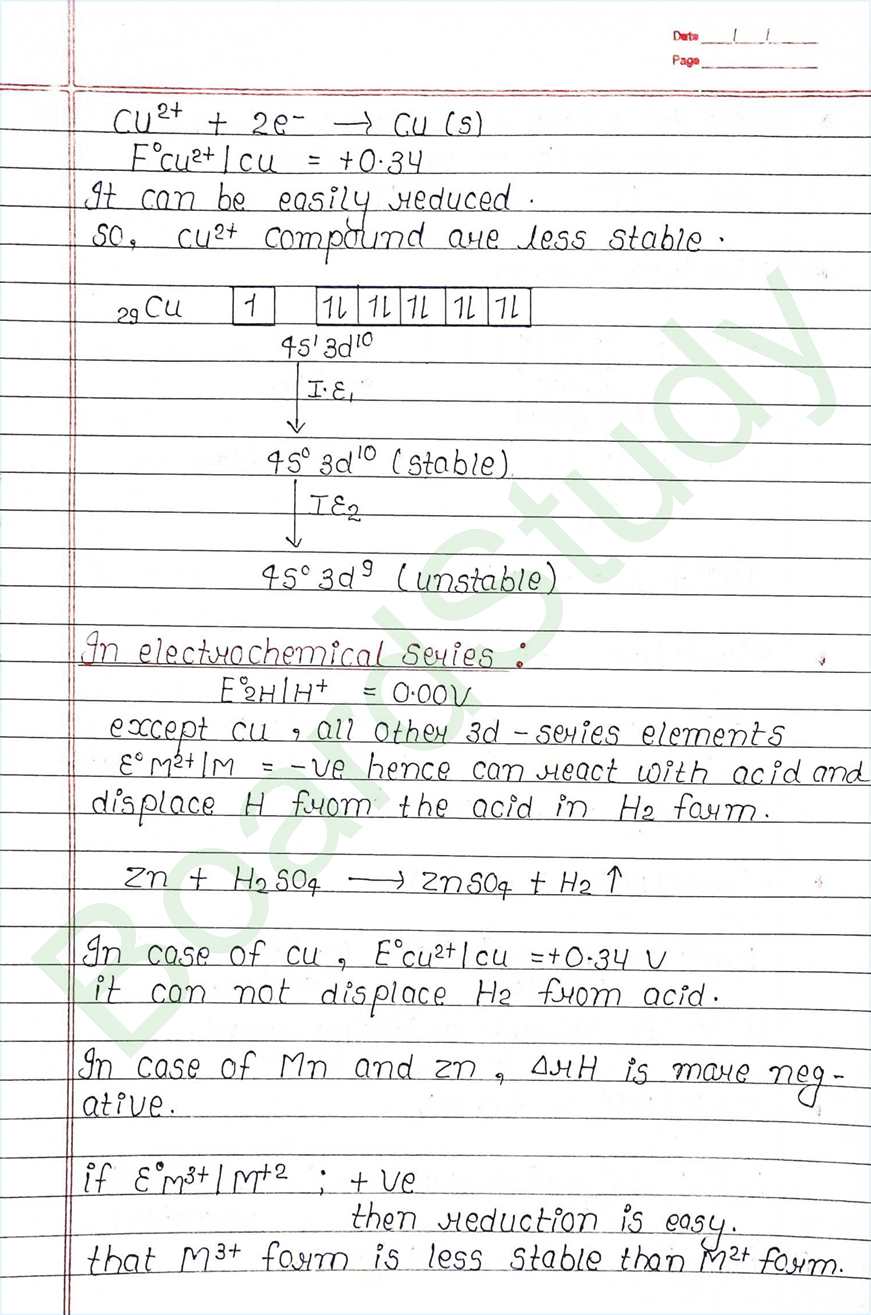 Date / /
Page
Cu²⁺ + 2e⁻ → Cu (s)
E°cu²⁺|cu = +0.34
It can be easily reduced.
so, cu²⁺ compound are less stable.
₂₉Cu 1 1l 1l 1l 1l 1l
4s¹ 3d¹⁰
I.E₁
4s⁰ 3d¹⁰ (stable)
IE₂
4s⁰ 3d⁹ (unstable)
In electrochemical series :
E°2H|H⁺ = 0.00V
except cu, all other 3d-series elements
E°M²⁺|M = -ve hence can react with acid and
displace H from the acid in H₂ form.
Zn + H₂SO₄ → ZnSO₄ + H₂ ↑
In case of cu, E°cu²⁺|cu = +0.34 V
it can not displace H₂ from acid.
In case of Mn and zn, ΔrH is more neg-
ative.
if E°M³⁺|M⁺² ; +ve
then reduction is easy.
that M³⁺ form is less stable than M²⁺ form.
BoardStudy